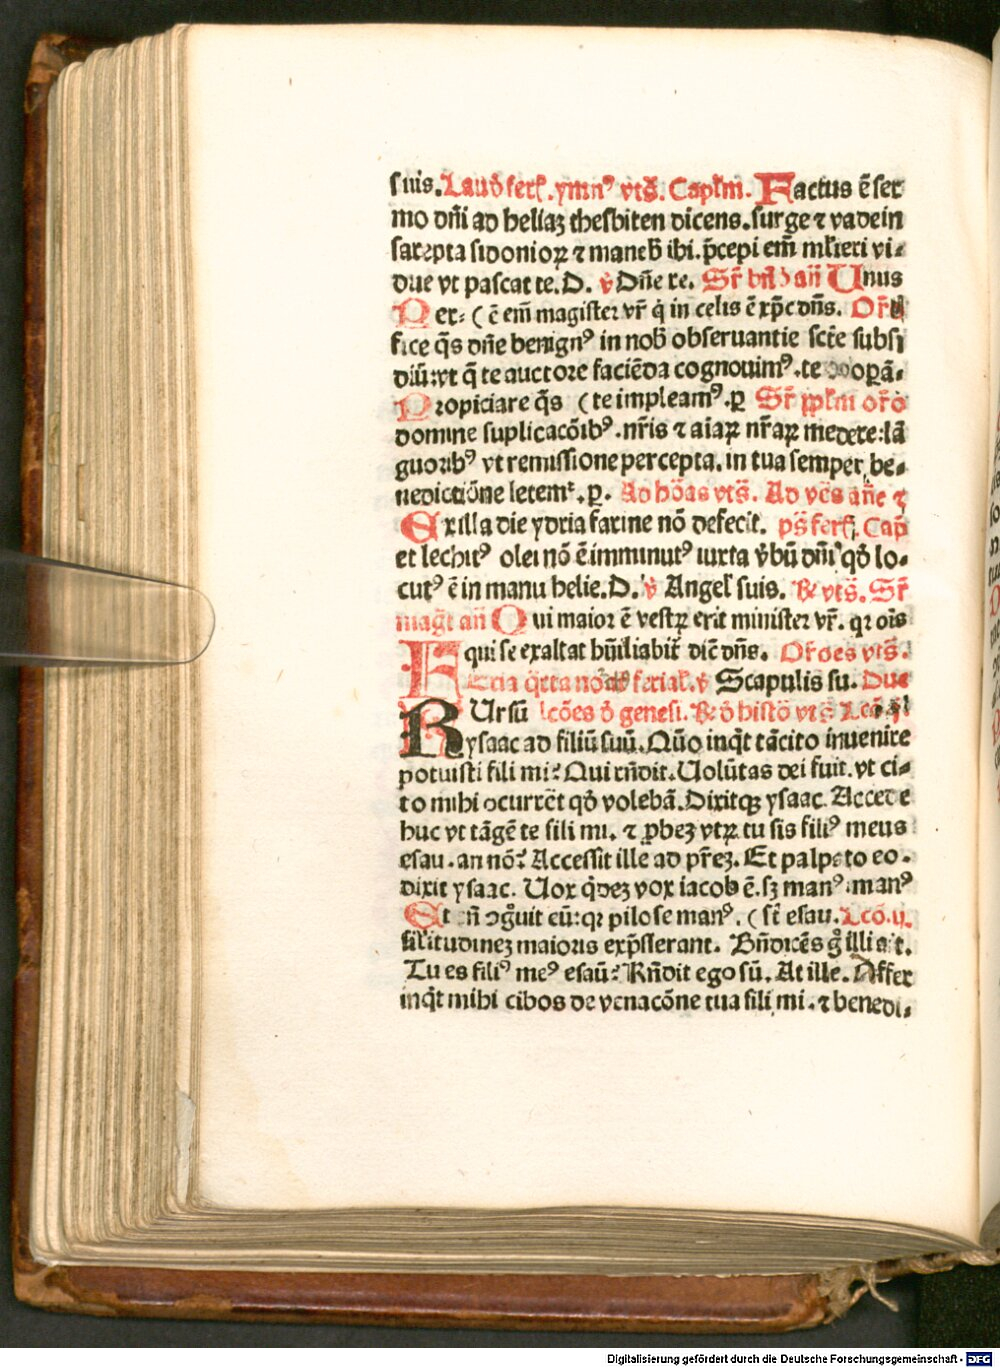 suis. Laud̄ ferꝭ. ymnꝰ vts̄. Capl̄m. Factus ē ser
mo dn̄i ad heliaꝫ thesbiten dicens. surge ⁊ vade in
sarepta sidonioꝝ ⁊ maneb̄ ibi. p̄cepi em̄ ml̄ieri vi⸗
due vt pascat te. D. v̄ Dn̄e re. Sr̄ bn̄d an̄ Unus
Per⸗ ( ē em̄ magister vr̄ q̇ in celis ē xp̄c dn̄s. Or̄o
fice q̄s dn̄e benignꝰ in nob̄ obseruantie scte subsi
diū: vt q̄ te auctore faciēda cognouimꝰ. te oꝑā⸗
Propiciare q̄s ( te impleamꝰ. ꝑ Sr̄ ppl̄m or̄o
domine suplicacōibꝰ. nr̄is ⁊ aīaꝝ nr̄aꝝ medere: lā
guoribꝰ vt remissione percepta. in tua semper be⸗
nedictiōne letemᷣ. ꝑ. Ad hōas vts̄. Ad vēs an̄e ⁊
Ex illa die ydria farine nō defecit. ps̄ ferꝭ. Cap̄
et lechitꝰ olei nō ē imminutꝰ iuxta v̄bū dn̄i qd̄ lo⸗
cutꝰ ē in manu helie. D. v̄ Angel̄ suis. ꝶ vts̄. Sr̄
magt̄ an̄ Qui maior ē vestꝝ erit minister vr̄. qr oīs
qui se exaltat hūiliabit̄ dic̄ dn̄s. Or̄oes vts̄.
Feria q̄rta ferial̄. v̄ Scapulis su. Due
RUrsū lcōes d̄ genesi. ꝶ d̄ histō vts̄ Lcō
ysaac ad filiū suū. Qūo inqt̄ tācito inuenire
potuisti fili mi? Qui rn̄dit. Uolūtas dei fuit. vt ci⸗
to mihi ocurrēt qd̄ volebā. Dixitqꝫ ysaac. Accede
huc vt tāgē te fili mi. ⁊ ꝓbeꝫ vtꝝ tu sis filiꝰ meus
esau. an nō? Accessit ille ad pr̄eꝫ. Et palpato eo.
dixit ysaac. Uox q̇deꝫ vox iacob ē. sꝫ manꝰ manꝰ
Et n̄ ꝯgͦuit eū: qꝛ pilose manꝰ. ( st̄ esau. Lcō. ij.
sil̄itudineꝫ maioris exp̄sserant. Bn̄dicēs gͦ illi ait.
Tu es filiꝰ meꝰ esaū? Rn̄dit ego sū. At ille. Affer
inqt̄ mihi cibos de venacōne tua fili mi. ⁊ benedi⸗
Digitalisierung gefördert durch die Deutsche Forschungsgemeinschaft - DFG